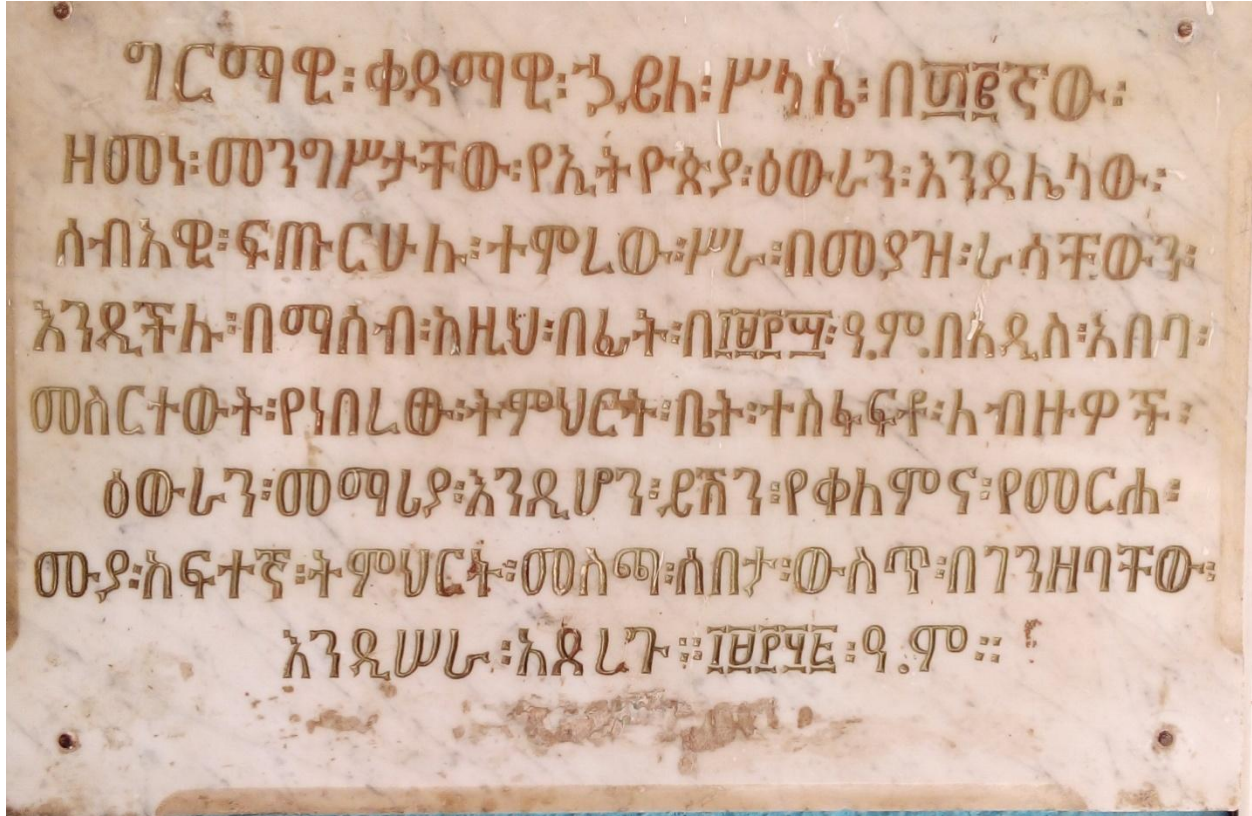 ግርማዊ፡ቀዳማዊ፡ኃይለ፡ሥላሴ፡በ፴፪ኛው፡
ዘመነ፡መንግሥታቸው፡የኢትዮጵያ፡ዕውራን፡እንደሌላው፡
ሰብአዊ፡ፍጡርሁሉ፡ተምረው፡ሥራ፡በመያዝ፡ራሳቸውን፡
እንዲችሉ፡በማሰብ፡ከዚህ፡በፊት፡በ፲፱፻፵፡ዓ.ም.በአዲስ፡አበባ፡
መስርተውት፡የነበረው፡ትምህርት፡ቤት፡ተስፋፍቶ፡ለብዙዎች፡
ዕውራን፡መማሪያ፡እንዲሆን፡ይሽን፡የቀለምና፡የመርሐ፡
ሙያ፡ከፍተኛ፡ትምህርት፡መስጫ፡ሰበታ፡ውስጥ፡በገንዘባቸው፡
እንዲሠራ፡አደረጉ።፲፱፻፶፭፡ዓ.ም።